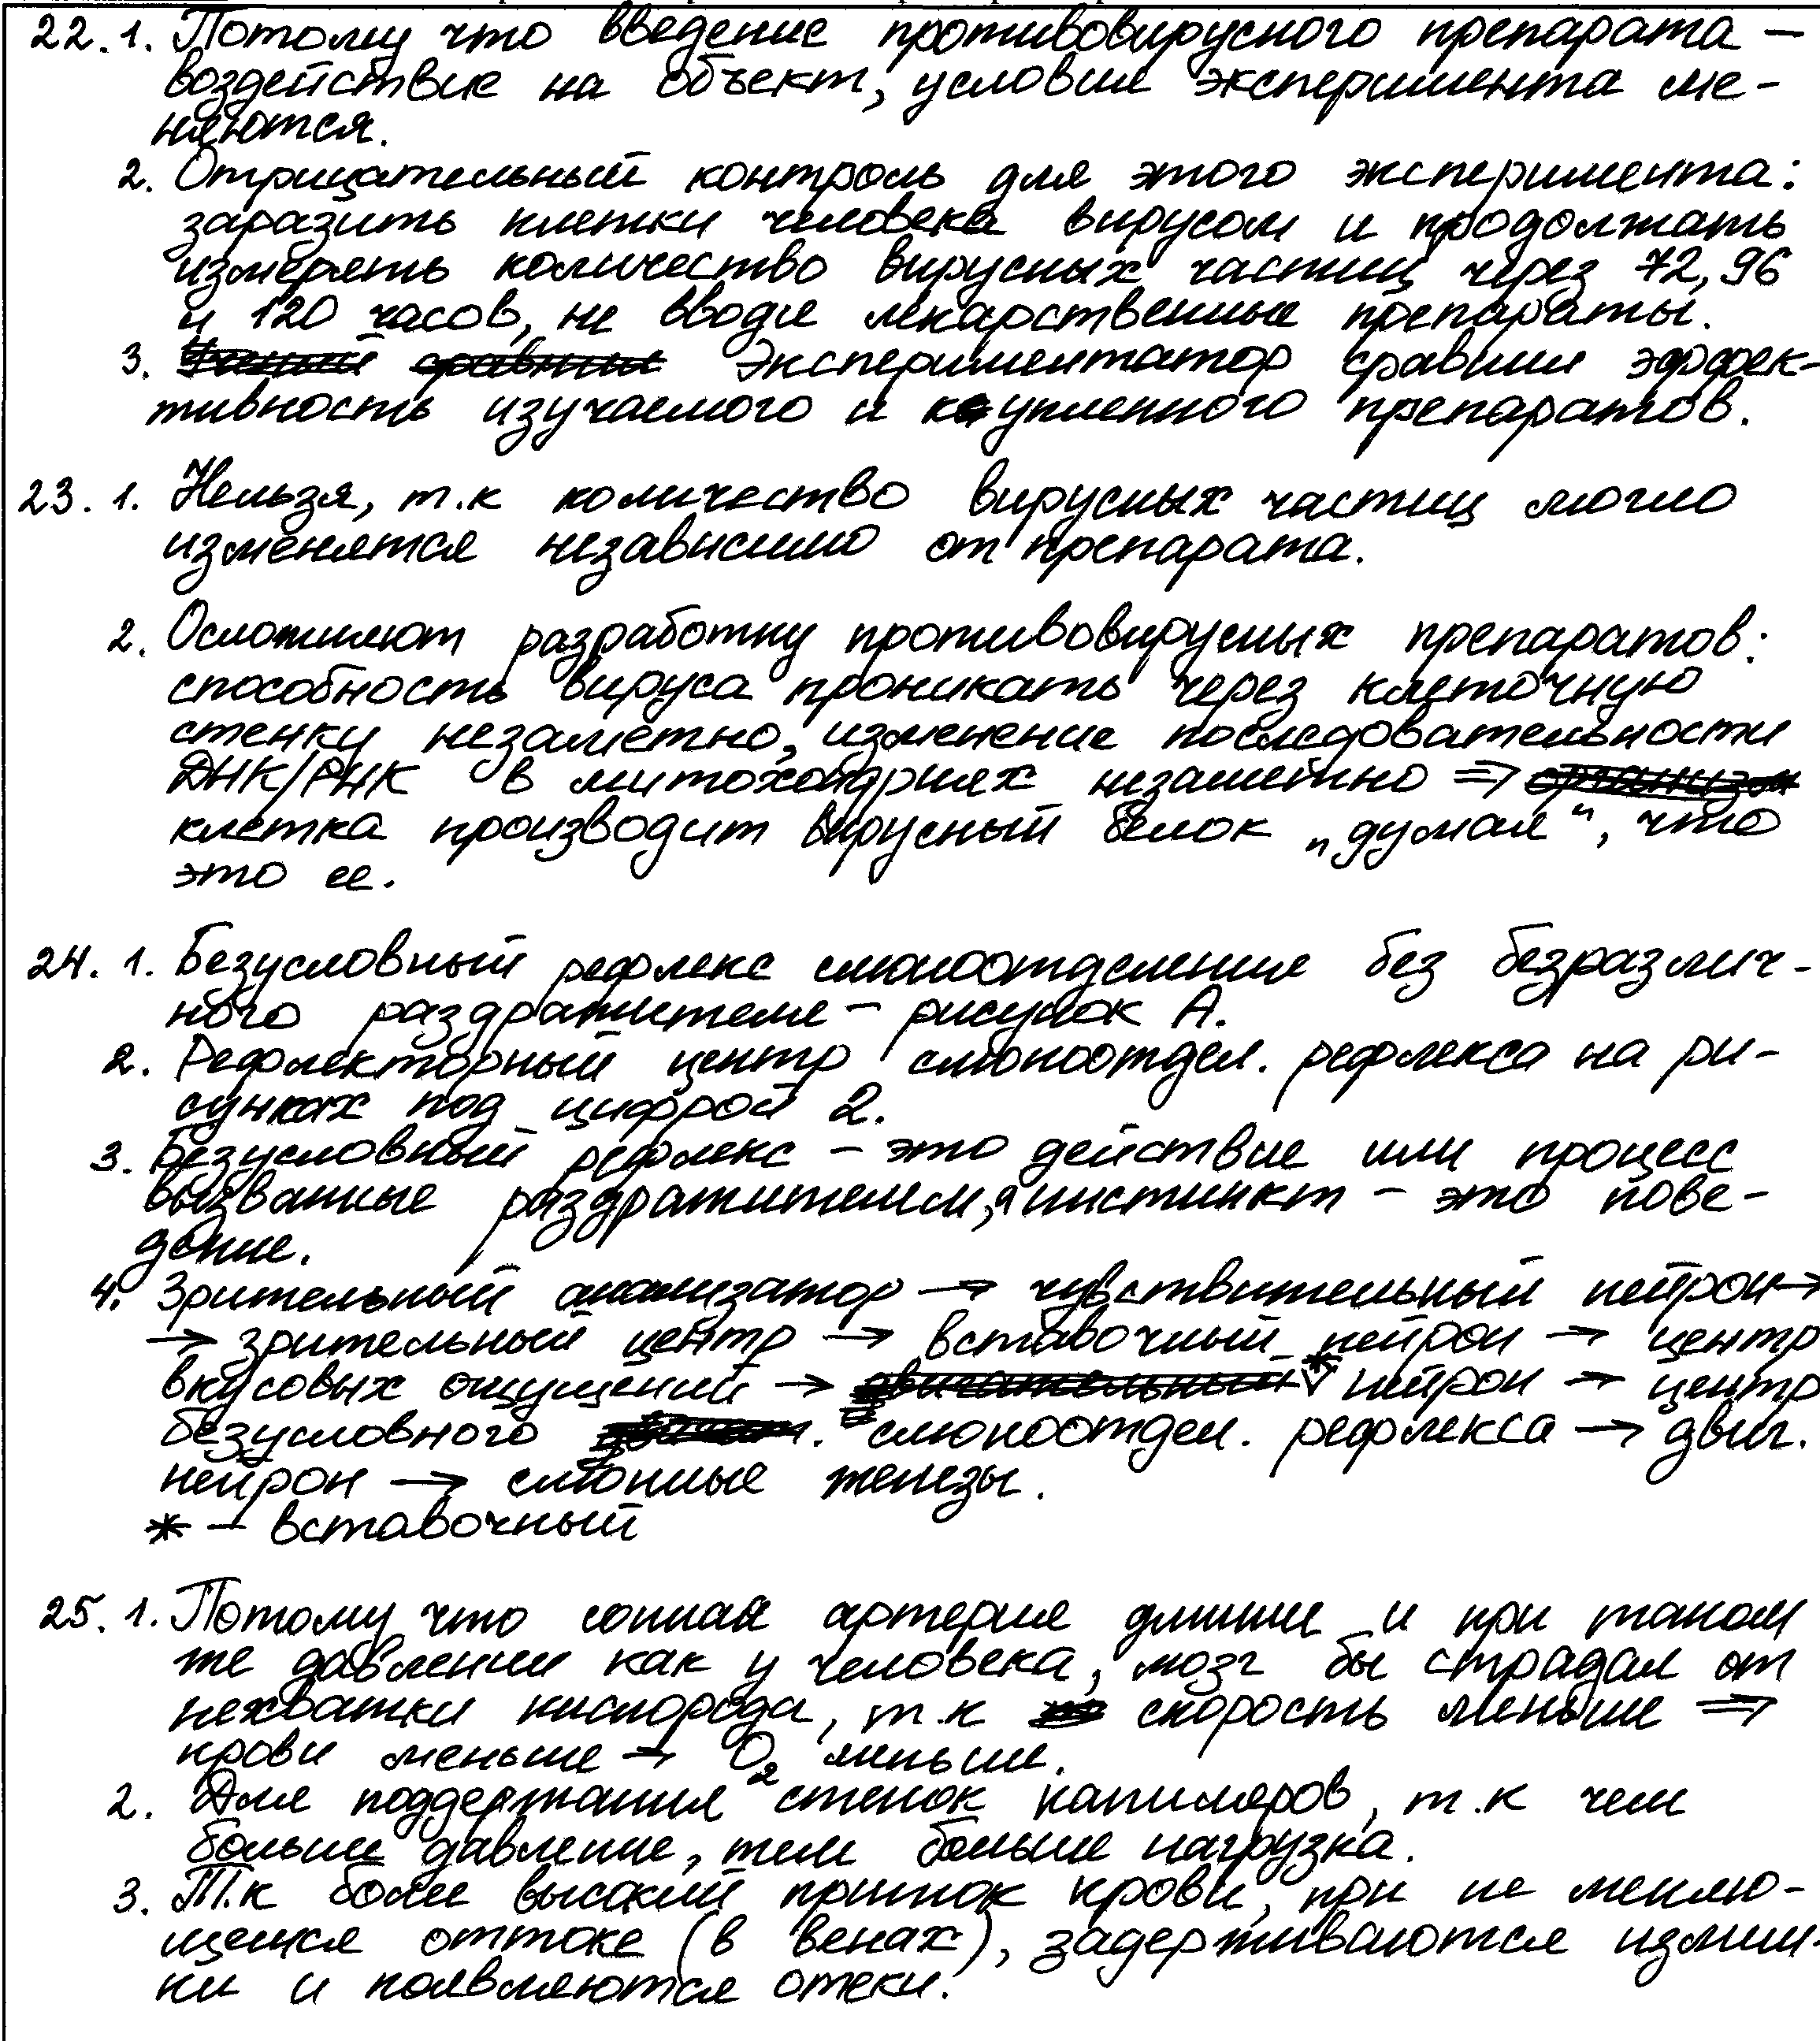 22. 1. Потому что введение противовирусного препарата –
воздействие на объект, условия эксперимента ме-
няются.
2. Отрицательный контроль для этого эксперимента:
заразить клетки человека вирусом и продолжать
измерять количество вирусных частиц через 72, 96
и 120 часов, не вводя лекарственные препараты.
3. Экспериментатор сравнил эффек-
тивность изучаемого и купленного препаратов.
23. 1. Нельзя, т.к количество вирусных частиц могло
изменятся независимо от препарата.
2. Осложняют разработку противовирусных препаратов:
способность вируса проникать через клеточную
стенку незаметно, изменение последовательности
ДНК/РНК в митохондриях незаметно ⇒
клетка производит вирусный белок „думая“, что
это ее.
24. 1. Безусловный рефлекс слюноотделения без безразлич-
ного раздражителя – рисунок А.
2. Рефлекторный центр слюноотдел. рефлекса на ри-
сунках под цифрой 2.
3. Безусловный рефлекс – это действие или процесс
вызванные раздражителем, а инстинкт – это пове-
дение.
4. Зрительный анализатор → чувствительный нейрон →
→ зрительный центр → вставочный нейрон → центр
вкусовых ощущений → * нейрон → центр
безусловного слюноотдел. рефлекса → двиг.
нейрон → слюнные железы.
* – вставочный
25. 1. Потому что сонная артерия длинне и при таком
же давлении как у человека, мозг бы страдал от
нехватки кислорода, т.к скорость меньше ⇒
крови меньше → O₂ меньше.
2. Для поддержания стенок капиляров, т.к чем
больше давление, тем больше нагрузка.
3. Т.к более высокий приток крови, при не меняю-
щемся оттоке (в венах), задерживаются излиш-
ки и появляются отеки.